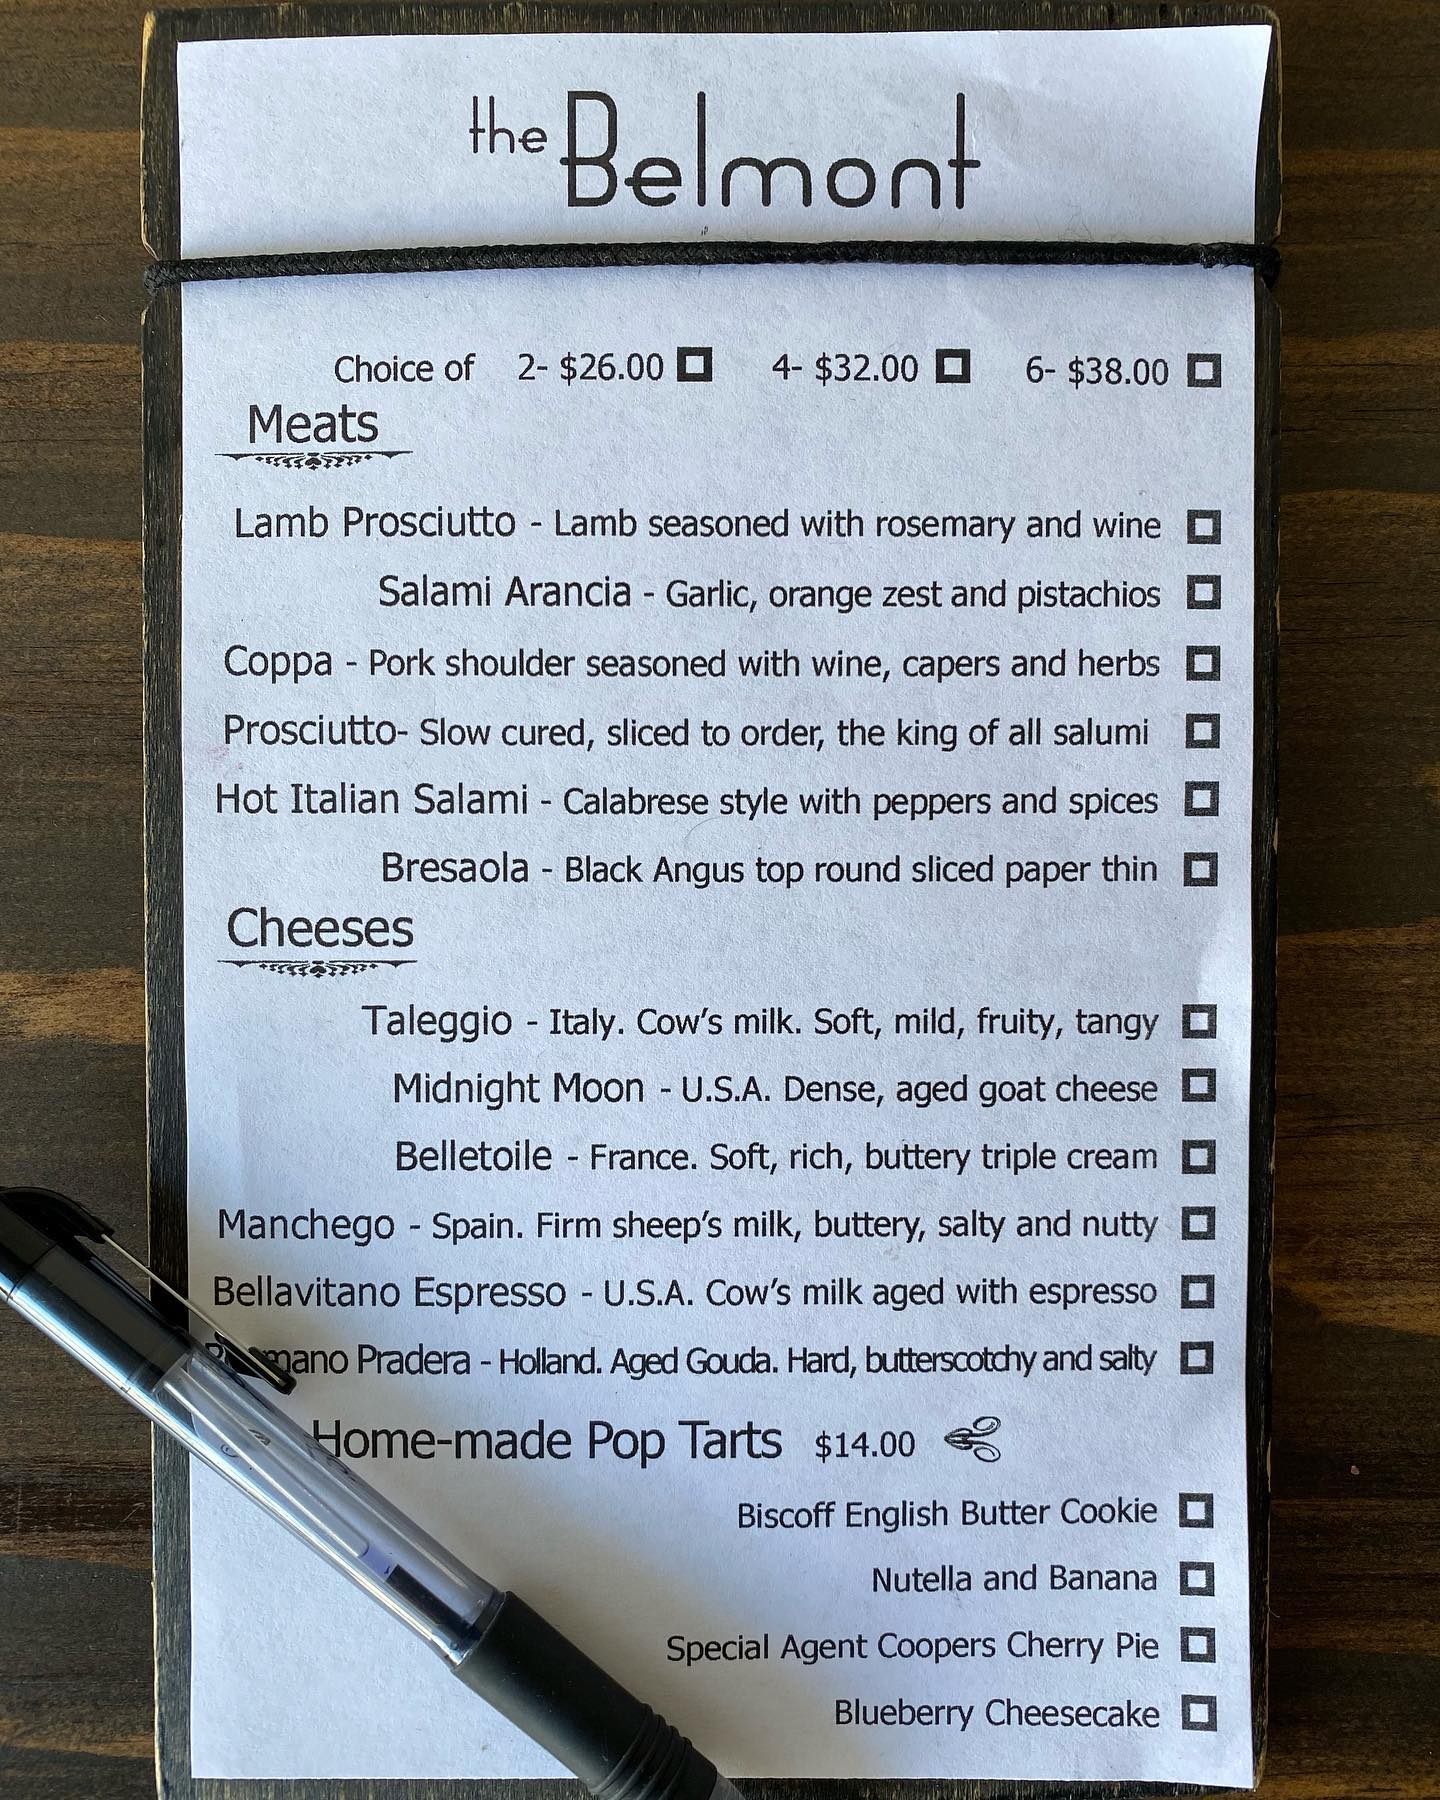 the Belmont
Choice of 2- $26.00 4- $32.00 6- $38.00
Meats
Lamb Prosciutto - Lamb seasoned with rosemary and wine
Salami Arancia - Garlic, orange zest and pistachios
Coppa - Pork shoulder seasoned with wine, capers and herbs
Prosciutto- Slow cured, sliced to order, the king of all salumi
Hot Italian Salami - Calabrese style with peppers and spices
Bresaola - Black Angus top round sliced paper thin
Cheeses
Taleggio - Italy. Cow's milk. Soft, mild, fruity, tangy
Midnight Moon - U.S.A. Dense, aged goat cheese
Belletoile - France. Soft, rich, buttery triple cream
Manchego - Spain. Firm sheep's milk, buttery, salty and nutty
Bellavitano Espresso - U.S.A. Cow's milk aged with espresso
Pradera - Holland. Aged Gouda. Hard, butterscotchy and salty
Home-made Pop Tarts $14.00
Biscoff English Butter Cookie
Nutella and Banana
Special Agent Coopers Cherry Pie
Blueberry Cheesecake